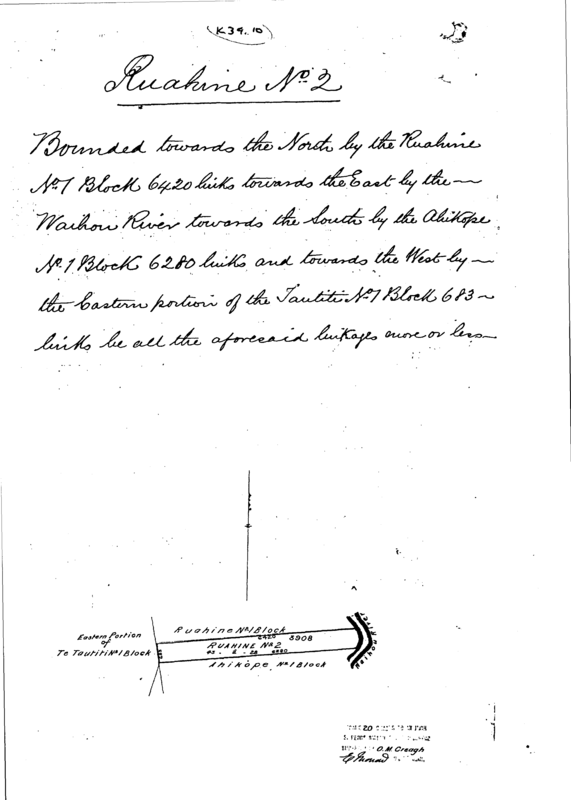 K39.10
Ruahine No 2
Bounded towards the North by the Ruahine
No 1 Block 6420 links towards the East by the
Waihou River towards the South by the Ahikope
No. 1 Block 6280 links and towards the West by
the Eastern portion of the Tautiti No 1 Block 683
links be all the aforesaid linkages more or less
Ruahine No 1 Block
6420 5908
Eastern Portion
of
Te Tautiti No 1 Block
RUAHINE No 2
6280
Ahikope No 1 Block
Waihou River
O.M Creagh